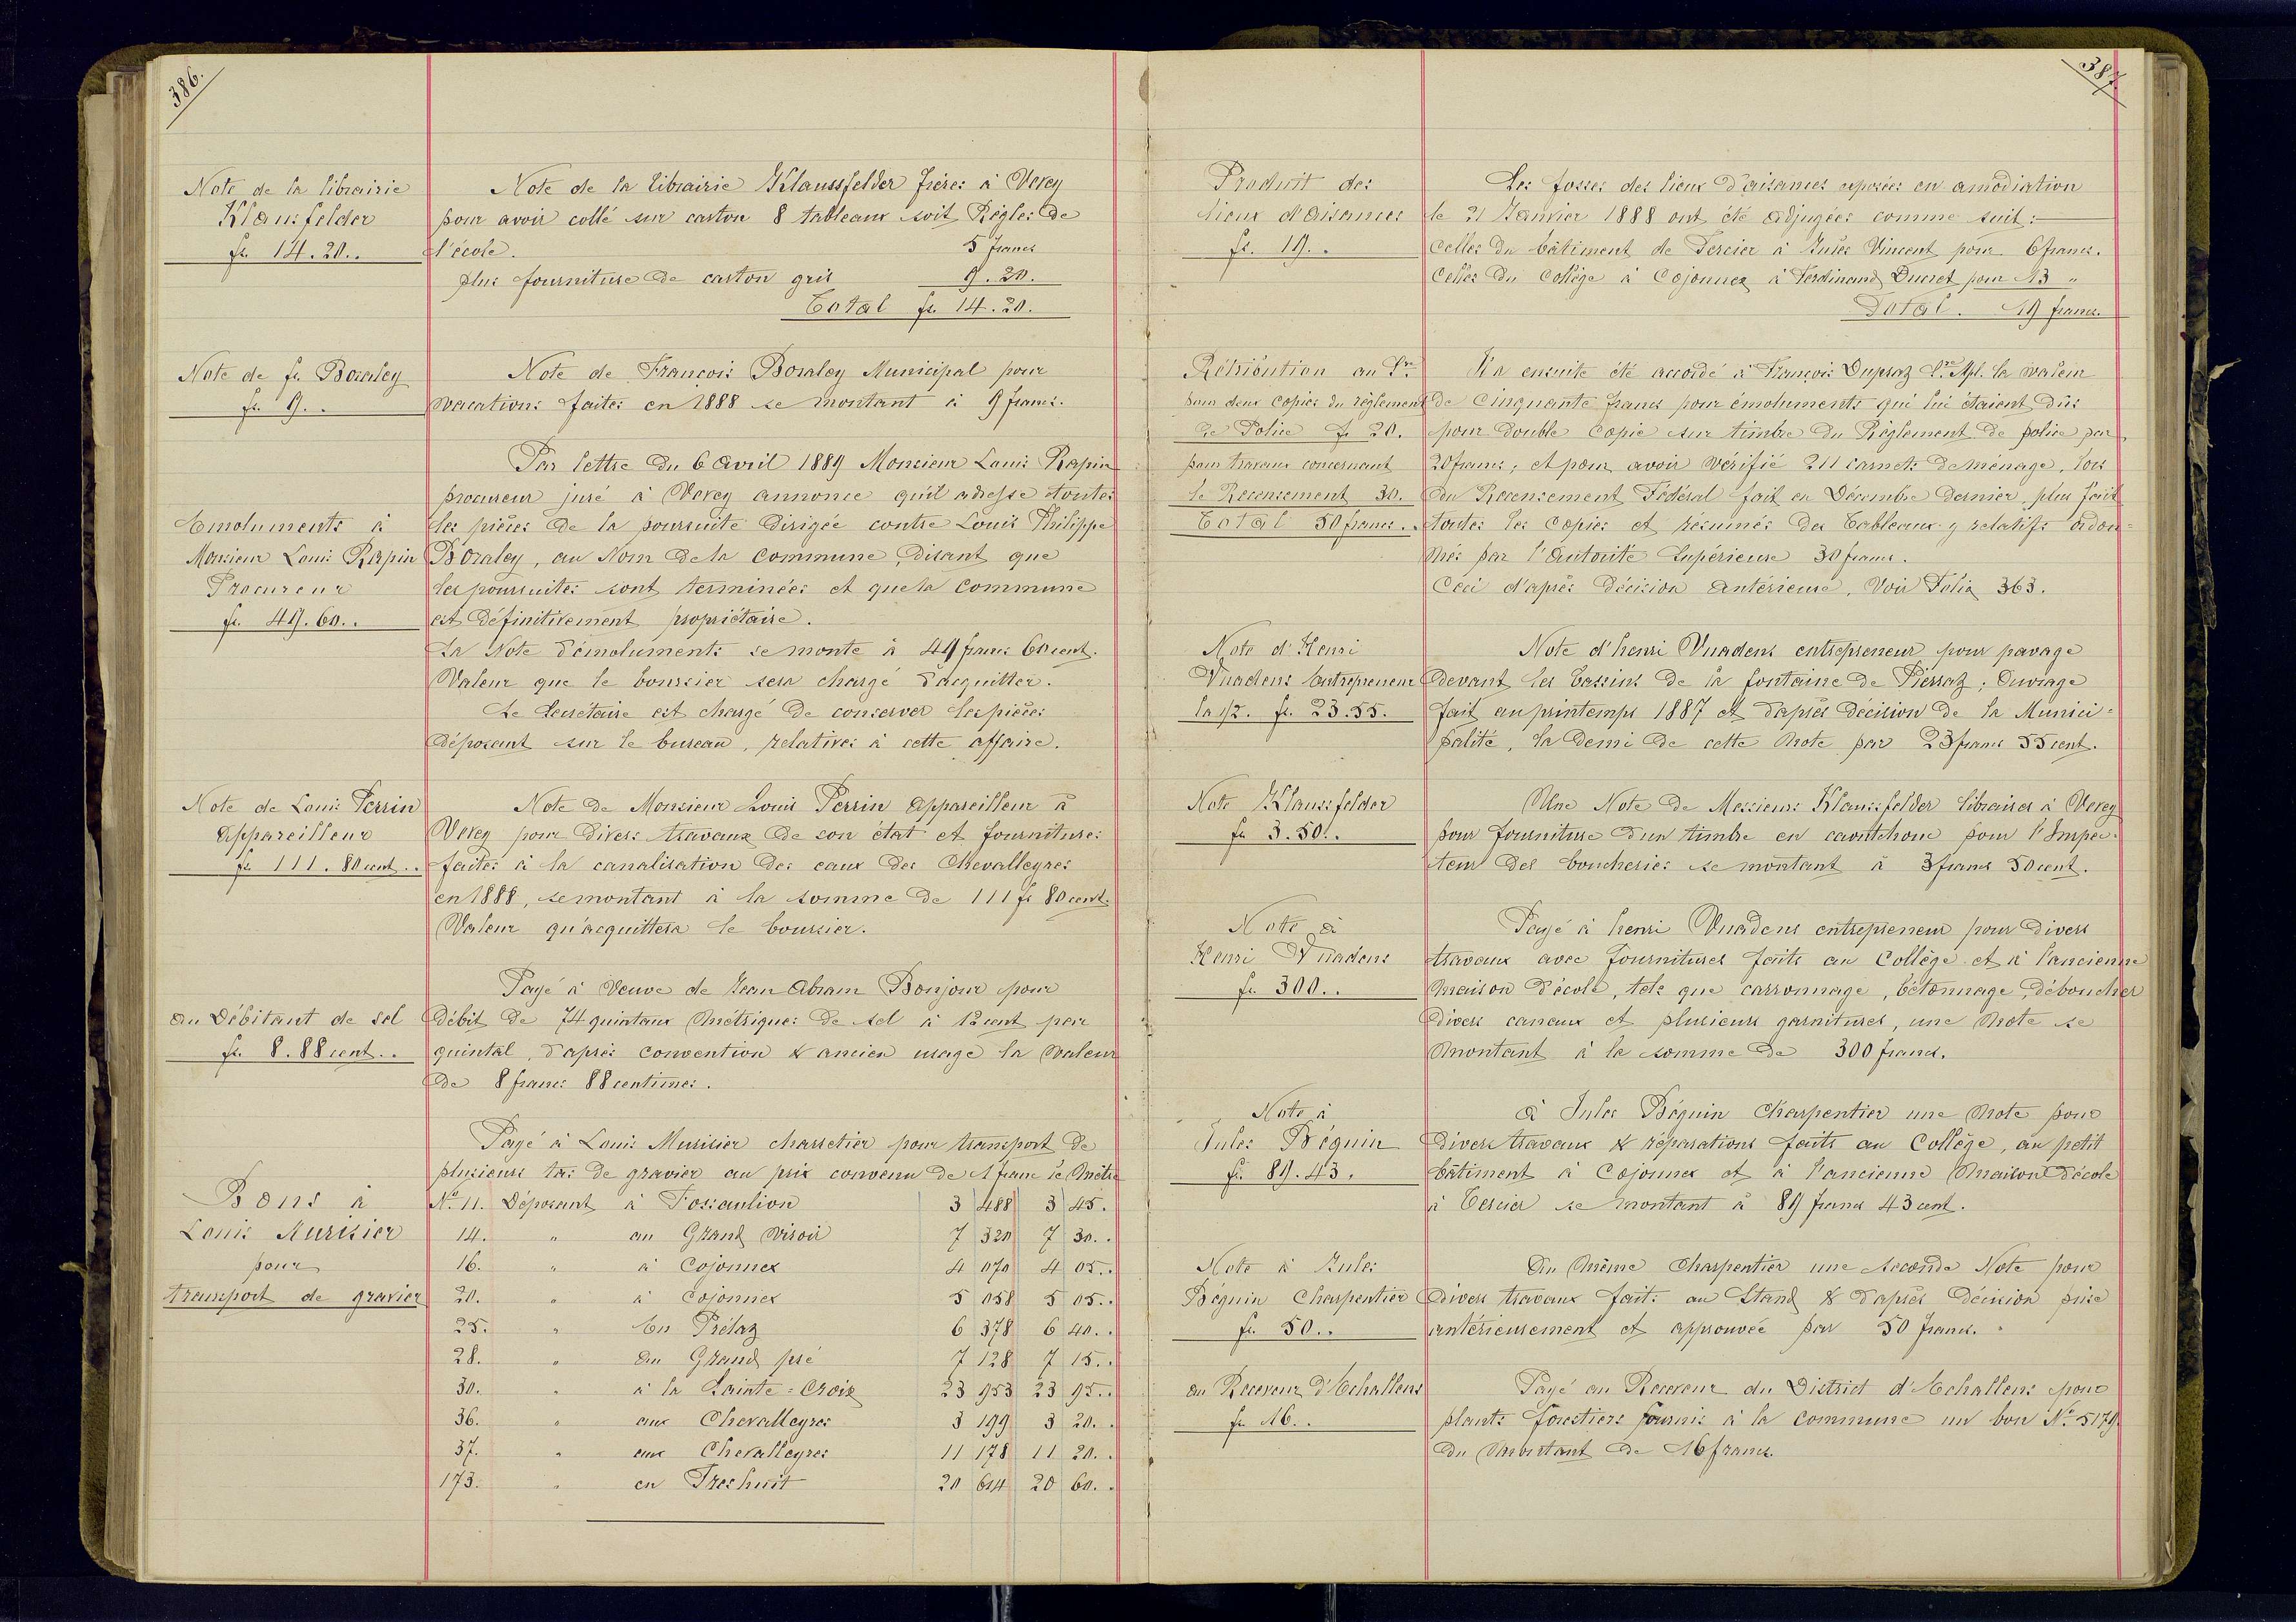 386.
Note de la librairie
Klausfelder
fr. 14.20..
Note de la librairie Klaussfelder frères à Vevey
pour avoir collé sur carton 8 tableaux soit Règles de
l'école. 5 francs
plus fourniture de carton gris 9.20.
Total fr. 14.20.
Note de fs Boraley
fr. 9..
Note de François Boraley Municipal pour
vacations faites en 1888 se montant à 9 francs.
Emoluments à
Monsieur Louis Rapin
Procureur
fr. 49.60..
Par lettre du 6 avril 1889 Monsieur Louis Rapin
procureur juré à Vevey annonce qu'il adresse toutes
les pièces de la poursuite dirigée contre Louis Philippe
Boraley, au Nom de la commune, disant que
les poursuites sont terminées et que la commune
est définitivement propriétaire.
La Note d'émoluments se monte à 49 francs 60 cent.
Valeur que le boursier sera chargé d'acquitter.
Le Secrétaire est chargé de conserver les pièces
déposant sur le bureau, relatives à cette affaire.
Note de Louis Perrin
appareilleur
fr 111.80 cent..
Note de Monsieur Louis Perrin appareilleur à
Vevey pour divers travaux de son état et fournitures
faites à la canalisation des eaux des Chevalleyres
en 1888, se montant à la somme de 111 fr 80 cent.
Valeur qu'acquittera le boursier.
au Débitant de sel
fr. 8.88 cent..
Payé à Veuve de Jean Abram Bonjour pour
débit de 74 quintaux métriques de sel à 12 cent par
quintal, d'après convention & ancien usage la valeur
de 8 francs 88 centimes.
Bons à
Louis Murisier
pour
transport de gravier
Payé à Louis Murisier charretier pour transport de
plusieurs tas de gravier au prix convenu de 1 franc le mètre
No. 11. Déposant à Fossaulion 3 488 3 45.
14. " au Grand Viroir 7 320 7 30..
16. " à Cojonnex 4 070 4 05..
20. " à Cojonnex 5 058 5 05..
25. " En Prélaz 6 378 6 40..
28. " au Grand pré 7 128 7 15..
30. " à la Sainte=Croix 23 953 23 95..
36. " aux Chevalleyres 3 199 3 20..
37. " aux Chevalleyres 11 178 11 20..
173. " en Treshuit 20 614 20 60..
387.
Produit des
lieux d'aisances
fr. 19..
Les fosses des lieux d'aisances exposées en amodiation
le 21 Janvier 1888 ont été adjugées comme suit:
Celles du bâtiment de Tercier à Jules Vincent pour 6 francs.
Celles du Collège à Cojonnex à Ferdinand Ducret pour 13 "
Total. 19 francs.
Rétribution au Sre
pour deux copies du règlement
de Police fr 20.
pour travaux concernant
le Recensement 30.
Total 50 francs..
Il a ensuite été accordé à François Dupraz Sre Mpl. la valeur
de Cinquante francs pour émoluments qui lui étaient dûs
pour double copie sur timbre du Règlement de police par
20 francs; et pour avoir vérifié 211 carnets de ménage, lors
du Recensement Fédéral fait en Décembre dernier, plus fait
toutes les copies et résumés des Tableaux y relatifs ordon=
nés par l'autorité Supérieure 30 francs.
Ceci d'après décision antérieure, Voir Folio 363.
Note d'Henri
Vuadens Entrepreneur
la 1/2. fr. 23.55.
Note d'henri Vuadens entrepreneur pour pavage
devant les bassins de la fontaine de Pierraz; Ouvrage
fait au printemps 1887 et d'après décision de la Munici=
palité, la demi de cette Note par 23 francs 55 cent.
Note Klaussfelder
fr 3.50..
Une Note de Messieurs Klaussfelder libraires à Vevey
pour fourniture d'un timbre en caoutchouc pour l'Inspec=
teur des boucheries se montant à 3 francs 50 cent.
Note à
Henri Vuadens
fr 300..
Payé à henri Vuadens entrepreneur pour divers
travaux avec fournitures faits au Collège et à l'ancienne
maison d'école, tels que carronnage, bétonnage, déboucher
divers canaux et plusieurs garnitures, une Note se
montant à la somme de 300 francs.
Note à
Jules Béguin
fr. 89.43.
à Jules Béguin charpentier une Note pour
divers travaux & réparations faits au Collège, au petit
bâtiment à Cojonnex et à l'ancienne maison d'école
à Tercier se montant à 89 francs 43 cent.
Note à Jules
Béguin Charpentier
fr. 50..
Au même Charpentier une seconde Note pour
divers travaux faits au Stand & d'après décision prise
antérieurement et approuvée par 50 francs.
au Receveur d'Echallens
fr 16..
Payé au Receveur du District d'Echallens pour
plants forestiers fournis à la commune un bon No. 5179
du montant de 16 francs.